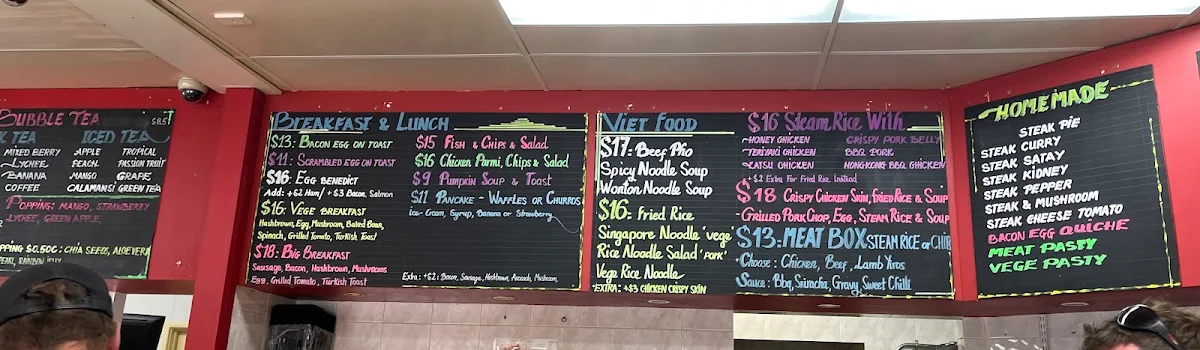 BUBBLE TEA $8.5
TEA ICED TEA
MIXED BERRY APPLE TROPICAL
LYCHEE PEACH PASSION FRUIT
BANANA MANGO GRAPE
COFFEE CALAMANSI GREEN TEA
POPPING: MANGO, STRAWBERRY
LYCHEE, GREEN APPLE,
$0.50C: CHIA SEEDS, ALOEVERA
PEARL, RAINBOW JELLY
BREAKFAST & LUNCH
$13: BACON EGG ON TOAST
$11: SCRAMBLED EGG ON TOAST
$16: EGG BENEDICT
Add: +$2 Ham / +$3 Bacon, Salmon
$16: VEGE BREAKFAST
Hashbrown, Egg, Mushroom, Baked Bean,
Spinach, Grilled Tomato, Turkish Toast
$18: BIG BREAKFAST
Sausage, Bacon, Hashbrown, Mushrooms
Egg, Grilled Tomato, Turkish Toast
$15 FISH & CHIPS & SALAD
$16 CHICKEN PARMI, CHIPS & SALAD
$9 PUMPKIN SOUP & TOAST
$11 PANCAKE - WAFFLES OR CHURROS
Ice-Cream, Syrup, Banana or Strawberry
Extra: +$2: Bacon, Sausage, Hashbrown, Avocado, Mushroom,
VIET FOOD
$17: Beef Pho
Spicy Noodle Soup
Wonton Noodle Soup
$16: Fried Rice
Singapore Noodle 'vege'
Rice Noodle Salad 'PORK'
Vege Rice Noodle
EXTRA: +$3 CHICKEN CRISPY SKIN
$16 STEAM RICE WITH
HONEY CHICKEN CRISPY PORK BELLY
TERIYAKI CHICKEN BBQ PORK
KATSU CHICKEN HONGKONG BBQ CHICKEN
+$2 Extra For Fried Rice Instead
$18 CRISPY CHICKEN SKIN, FRIED RICE & SOUP
- GRILLED PORK CHOP, EGG, STEAM RICE & SOUP
$13: MEAT BOX STEAM RICE OR CHIP
- Choose: Chicken, Beef, Lamb Yiros
- Sauce: Bbq, Sriracha, Gravy, Sweet Chilli
HOMEMADE
STEAK PIE
STEAK CURRY
STEAK SATAY
STEAK KIDNEY
STEAK PEPPER
STEAK & MUSHROOM
STEAK CHEESE TOMATO
BACON EGG QUICHE
MEAT PASTY
VEGE PASTY